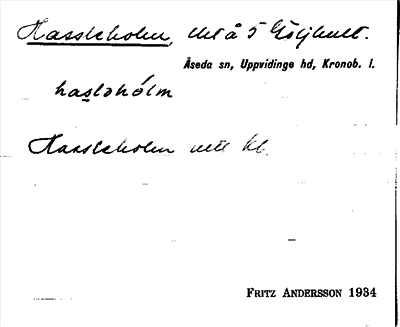 Hassleholm, utå 5 Göljhult.
Åseda sn, Uppvidinge hd, Kronob. l.
hasləhólm
Hassleholm utu kl.
FRITZ ANDERSSON 1934